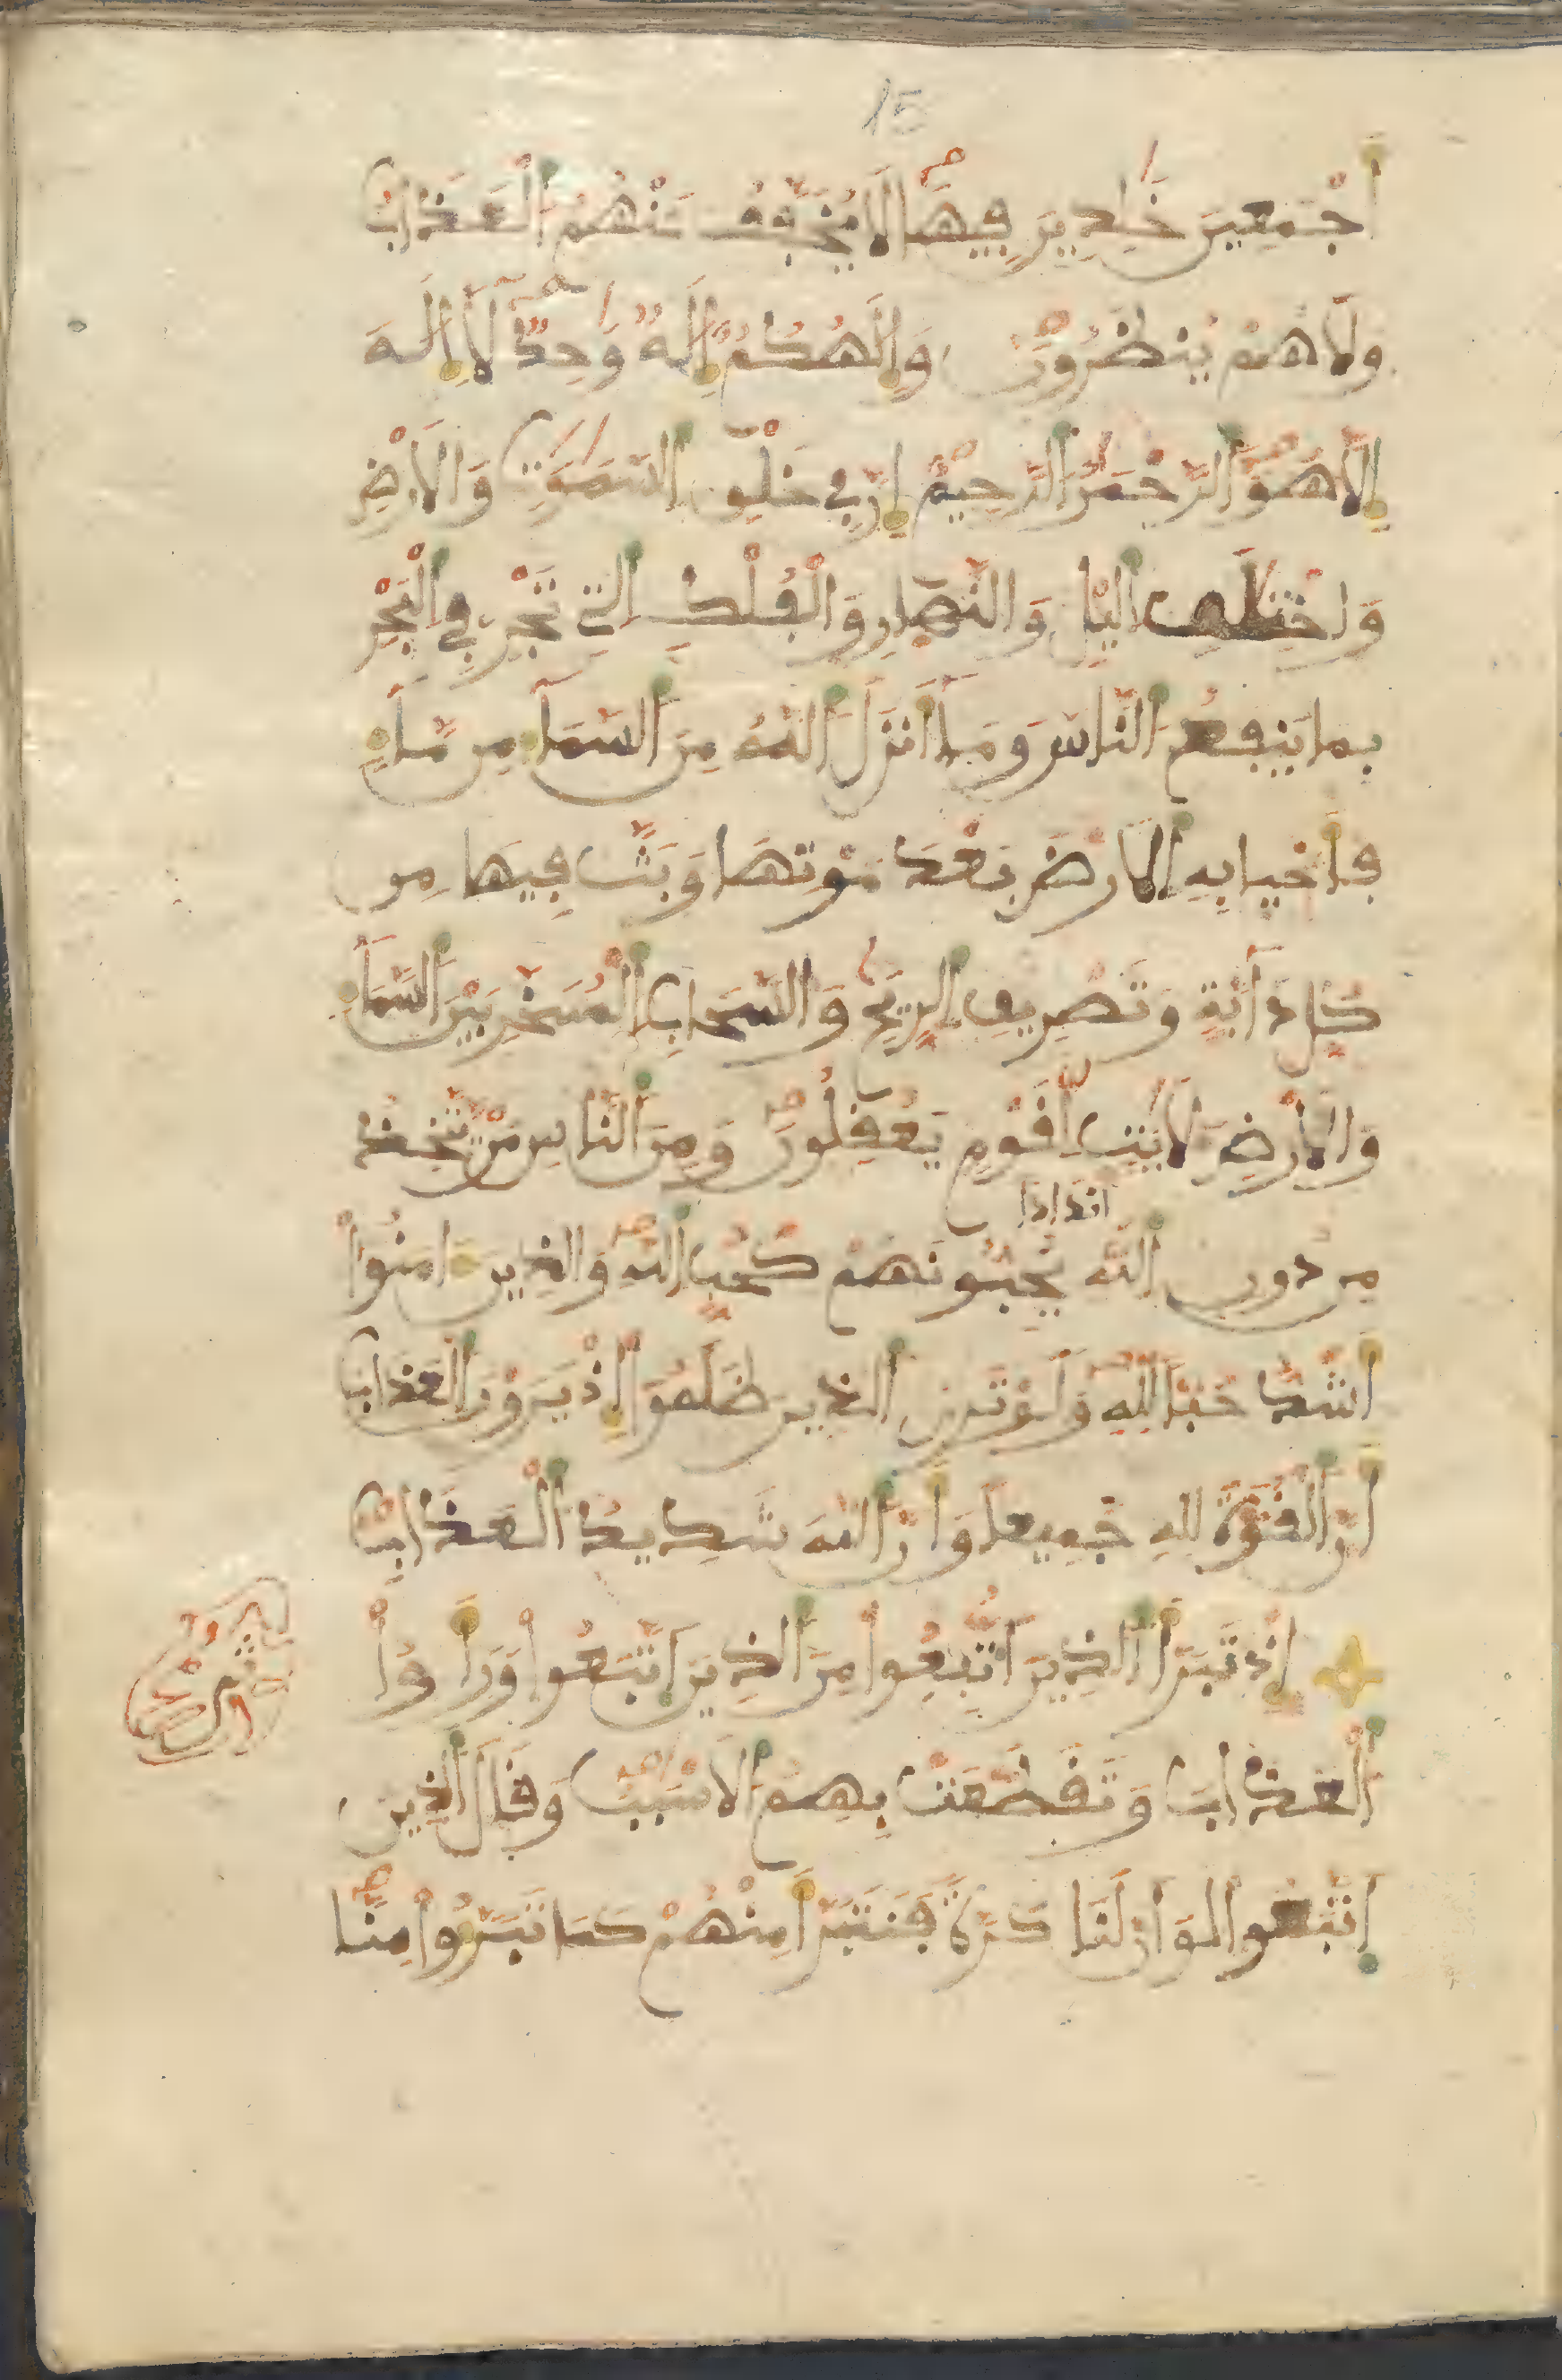 15
أَجْمَعِينَ خَٰلِدِينَ فِيهَا لَا يُخَفَّفُ عَنْهُمُ الْعَذَابُ
وَلَا هُمْ يُنظَرُونَ وَإِلَٰهُكُمْ إِلَٰهٌ وَٰحِدٌ لَّا إِلَٰهَ
إِلَّا هُوَ الرَّحْمَٰنُ الرَّحِيمُ إِنَّ فِي خَلْقِ السَّمَٰوَٰتِ وَالْأَرْضِ
وَاخْتِلَٰفِ الَّيْلِ وَالنَّهَارِ وَالْفُلْكِ الَّتِي تَجْرِي فِي الْبَحْرِ
بِمَا يَنفَعُ النَّاسَ وَمَا أَنزَلَ اللَّهُ مِنَ السَّمَاءِ مِن مَّاءٍ
فَأَحْيَا بِهِ الْأَرْضَ بَعْدَ مَوْتِهَا وَبَثَّ فِيهَا مِن
كُلِّ دَابَّةٍ وَتَصْرِيفِ الرِّيَٰحِ وَالسَّحَابِ الْمُسَخَّرِ بَيْنَ السَّمَاءِ
وَالْأَرْضِ لَأَيَٰتٍ لِّقَوْمٍ يَعْقِلُونَ وَمِنَ النَّاسِ مَنْ يَّتَّخِذُ
أندادا
مِن دُونِ اللَّهِ يُحِبُّونَهُمْ كَحُبِّ اللَّهِ وَالَّذِينَ ءَامَنُوا
أَشَدُّ حُبًّا لِّلَّهِ وَلَوْ تَرَى الَّذِينَ ظَلَمُوا إِذْ يَرَوْنَ الْعَذَابَ
أَنَّ الْقُوَّةَ لِلَّهِ جَمِيعًا وَأَنَّ اللَّهَ شَدِيدُ الْعَذَابِ
إِذْ تَبَرَّأَ الَّذِينَ اتُّبِعُوا مِنَ الَّذِينَ اتَّبَعُوا وَرَأَوُا
الْعَذَابَ وَتَقَطَّعَتْ بِهِمُ الْأَسْبَٰبُ وَقَالَ الَّذِينَ
اتَّبَعُوا لَوْ أَنَّ لَنَا كَرَّةً فَنَتَبَرَّأَ مِنْهُمْ كَمَا تَبَرَّءُوا مِنَّا